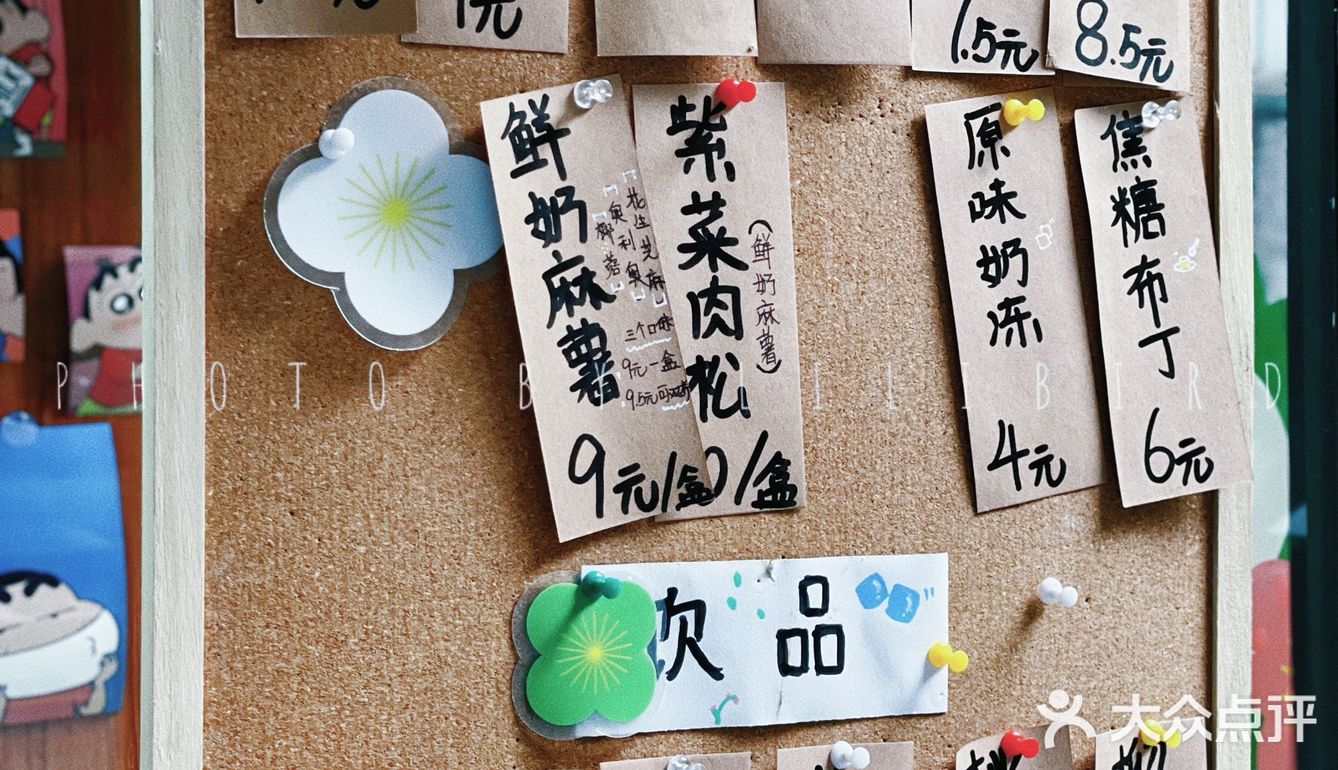 元
1.5元
8.5元
鲜奶麻薯
花生芝麻
奥利奥
椰蓉
三个口味
9元一盒
9元/盒
紫菜肉松
(鲜奶麻薯)
0/盒
原味奶冻
4元
焦糖布丁
6元
饮品
PHOTO BY
大众点评